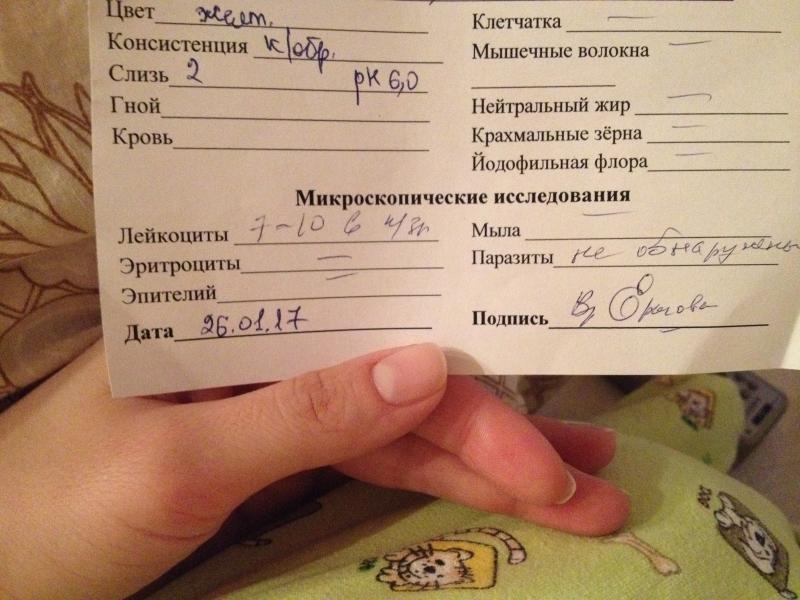 Цвет желт.
Консистенция к/обр.
Слизь 2 рН 6,0
Гной
Кровь
Клетчатка —
Мышечные волокна —
Нейтральный жир —
Крахмальные зёрна —
Йодофильная флора —
Микроскопические исследования
Лейкоциты 7-10 в п/зр
Эритроциты —
Эпителий —
Дата 26.01.17
Мыла —
Паразиты не обнаружены
Подпись Вр